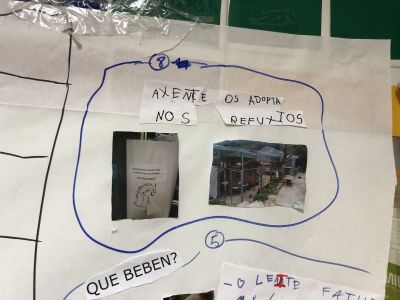 8
AXENTE OS ADOPTA
NOS REFUXIOS
5
QUE BEBEN?
- O LEITE